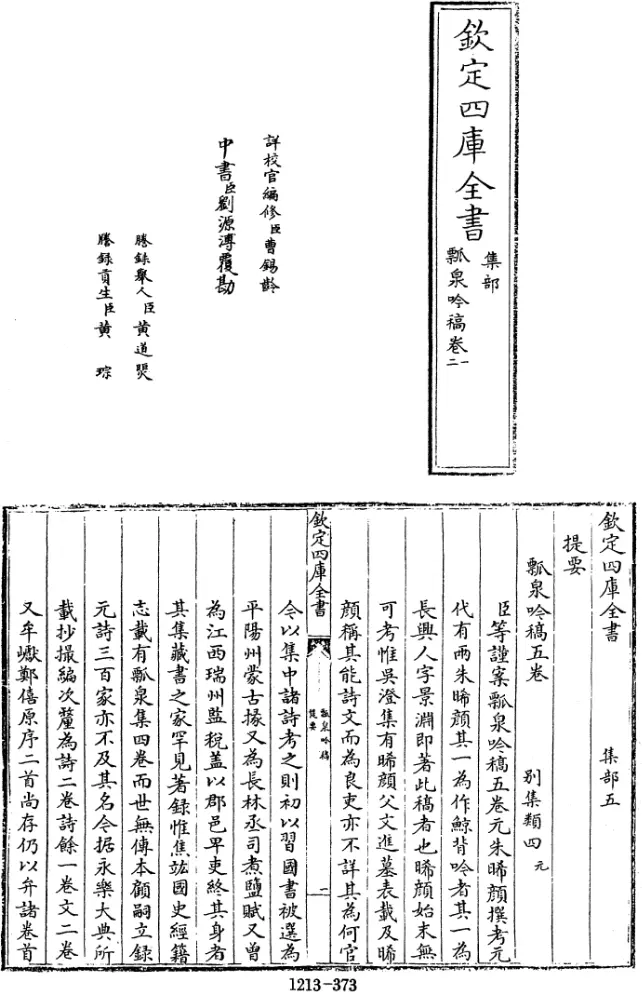 欽定四庫全書
集部
瓢泉吟稿卷一二
詳校官編修臣曹錫齡
中書臣劉源溥覆勘
謄錄舉人臣黃道煚
謄錄貢生臣黃琮
欽定四庫全書
集部五
提要
瓢泉吟稿五卷
別集類四元
臣等謹案瓢泉吟稿五卷元朱晞顔撰考元
代有兩朱晞顔其一為作鯨背吟者其一為
長興人字景淵即著此稿者也晞顔始末無
可考惟吳澄集有晞顔父文進墓表載及晞
顔稱其能詩文而為良吏亦不詳其為何官
欽定四庫全書
瓢泉吟稿
提要
一
今以集中諸詩考之則初以習國書被選為
平陽州蒙古掾又為長林丞司煮鹽賦又曾
為江西瑞州監稅盖以郡邑卑吏終其身者
其集藏書之家罕見著錄惟焦竑國史經籍
志載有瓢泉集四卷而世無傳本顧嗣立錄
元詩三百家亦不及其名今据永樂大典所
載抄撮編次釐為詩二卷詩餘一卷文二卷
又牟巘鄭僖原序二首尚存仍以弁諸卷首
1213-373